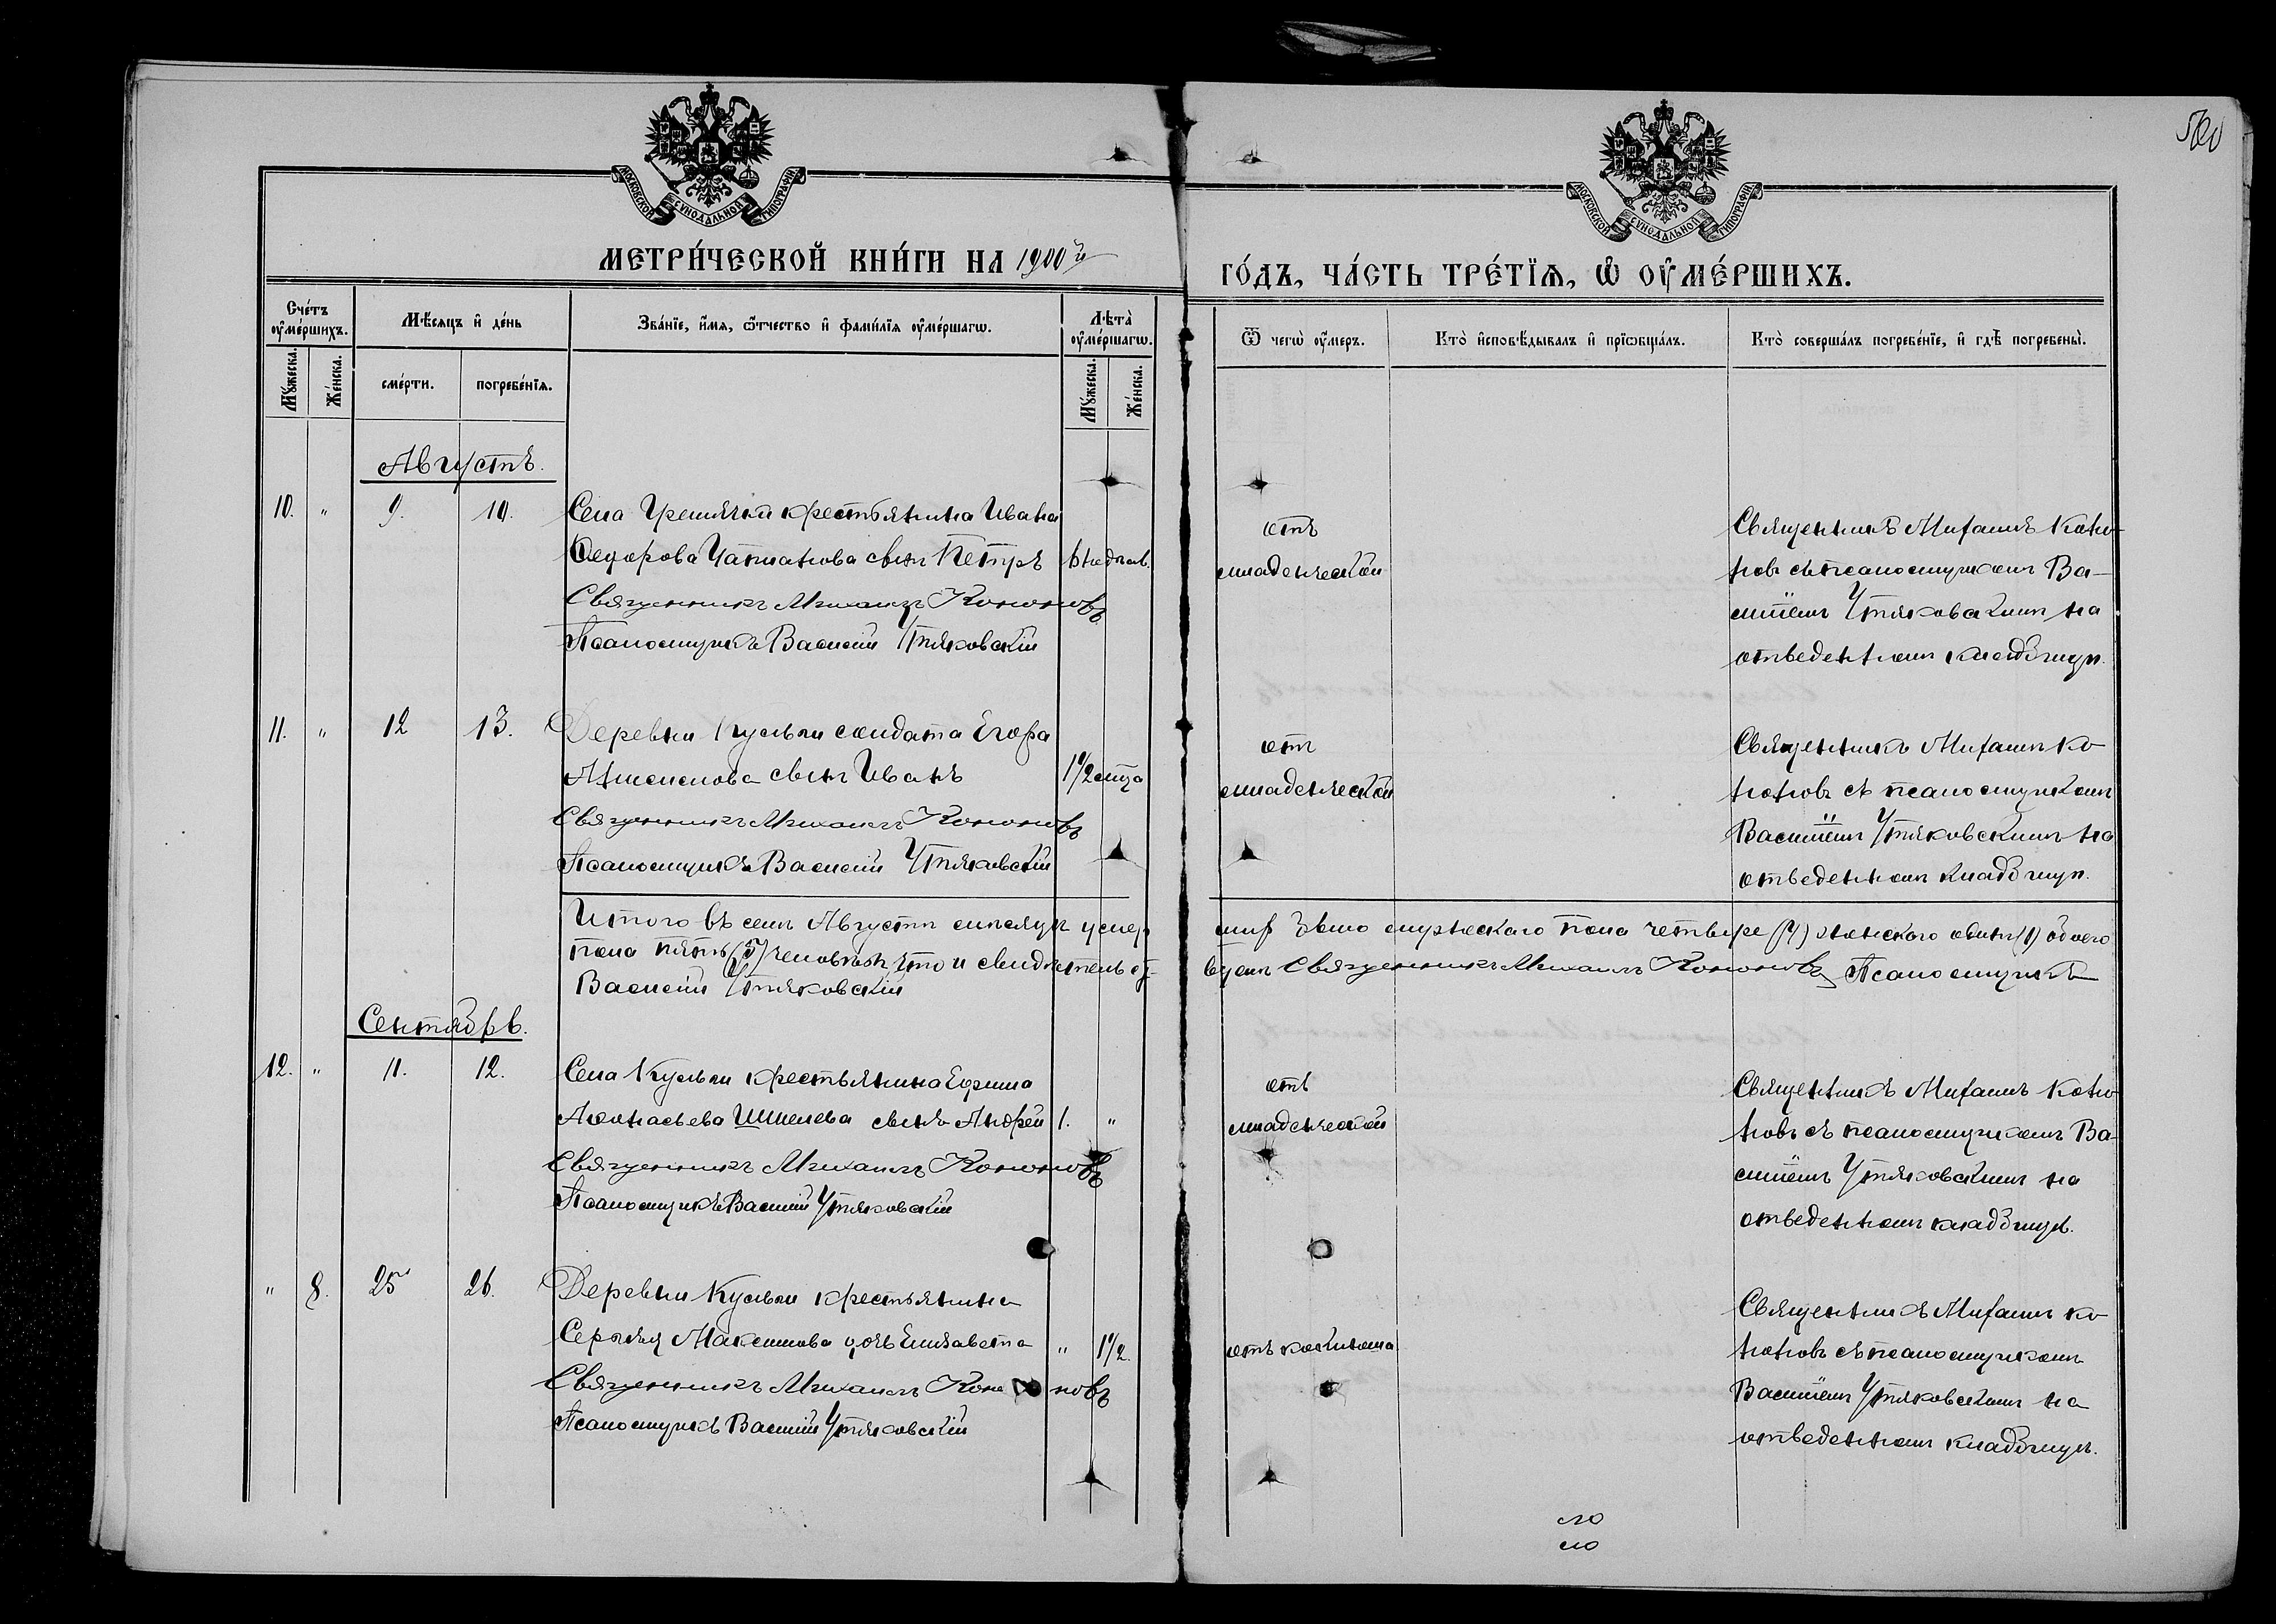 МОСКОВСКОЙ СУНОДАЛЬНОЙ ТИПОГРАФІИ
МОСКОВСКОЙ СУНОДАЛЬНОЙ ТИПОГРАФІИ
МЕТРИ́ЧЕСКОЙ КНИ́ГИ НА 1900й
ГО́ДЪ, ЧА́СТЬ ТРЕ́ТІЯ, Ѡ ОУМЕ́РШИХЪ.
Сче́тъ оуме́ршихъ.
Му́жеска.
Же́нска.
Мѣ́сяцъ и де́нь
сме́рти.
погребе́нія.
Зва́ніе, и́мя, ѻ́тчество и фами́лія оуме́ршагѡ.
Лѣ́та оуме́ршагѡ.
Му́жеска.
Же́нска.
Ѿ чегѡ̀ оу́меръ.
Кто̀ исповѣ́дывалъ и пріѡбща́лъ.
Кто̀ соверша́лъ погребе́ніе, и гдѣ̀ погребены̀.
Августъ.
10. " 9. 10.
Села крестьянина Ивана
Федорова сынъ Петръ
Священникъ Михаилъ Кононовъ
Псаломщикъ Василій Утяковскій
отъ
младенческой
Священникъ Михаилъ Коно-
новъ съ псаломщикомъ Ва-
силіемъ Утяковскимъ на
отведенномъ кладбищѣ.
11. " 12 13.
Деревни солдата Егора
сынъ Иванъ
1 1/2
Священникъ Михаилъ Кононовъ
Псаломщикъ Василій Утяковскій
отъ
младенческой
Священникъ Михаилъ Ко-
ноновъ съ псаломщикомъ
Василіемъ Утяковскимъ на
отведенномъ кладбищѣ.
Итого въ семъ Августѣ мѣсяцѣ умер
ших было мужескаго пола четыре (4) женского одинъ (1) обоего
пола пять (5) человѣкъ что и свидѣтель ст-
вуемъ Священникъ Михаилъ Кононовъ Псаломщикъ
Василій Утяковскій
Сентябрь.
12. " 11. 12.
Села крестьянина Ефима
Афонасьева Шишелева сынъ Андрей 1. "
Священникъ Михаилъ Кононовъ
Псаломщикъ Василій Утяковскій
отъ
младенческой
Священникъ Михаилъ Коно-
новъ съ псаломщикомъ Ва-
силіемъ Утяковскимъ на
отведенномъ кладбищѣ.
" 8. 25 26.
Деревни крестьянина
Сергѣя Максимова дочь Елизавета " 1 1/2.
Священникъ Михаилъ Кононовъ
Псаломщикъ Василій Утяковскій
отъ
Священникъ Михаилъ Ко-
ноновъ съ псаломщикомъ
Василіемъ Утяковскимъ на
отведенномъ кладбищѣ.